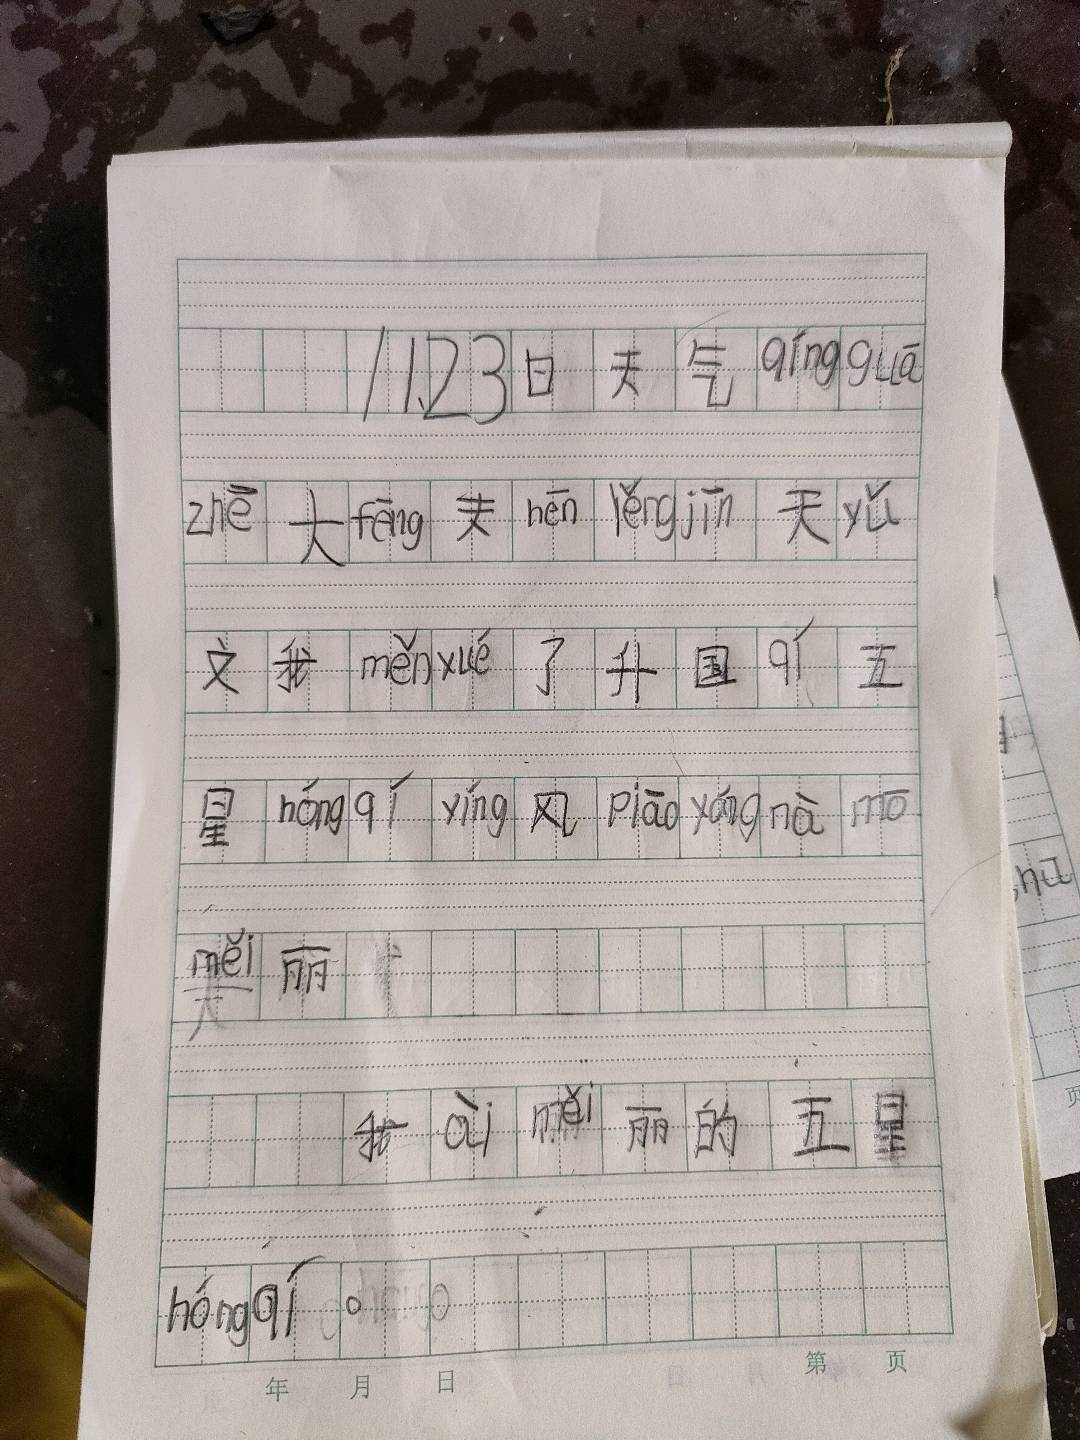 11.23日天气qíngguā
zhē大fēng天hēn lěngjīn天yǔ
文我měnxué了升国qí五
星hóngqí yíng风piāoyáng nà mō
měi丽
我ài měi丽的五星
hóngqí。
年 月 日 第 页